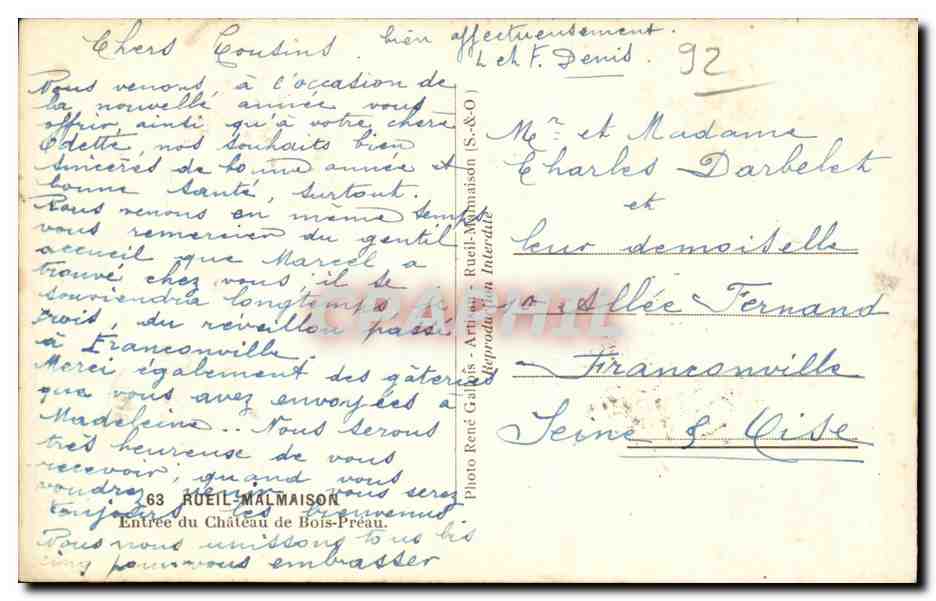 Chers Cousins
Nous venons, à l'occasion de
la nouvelle année vous
offrir, ainsi qu'à votre chère
Odette, nos souhaits bien
sincères de bonne année et
bonne santé, surtout.
Nous venons en même temps
vous remercier du gentil
accueil que Marcel a
trouvé chez vous, il se
souviendra longtemps, je
crois, du réveillon passé
à Franconville.
Merci également des gâteries
que vous avez envoyées à
Madeleine.. Nous serons
très heureuse de vous
recevoir, quand vous
voudrez venir vous serez
toujours les bienvenus
Nous nous unissons tous les
cinq pour vous embrasser
bien affectueusement.
L et F. Denis.
92
Mr et Madame
Charles Darbelet
et
leur demoiselle
10 Allée Fernand
Franconville
Seine & Oise
63 RUEIL-MALMAISON
Entrée du Château de Bois-Préau.
Photo René Galois - Artisan - Rueil-Malmaison (S.-&-O)
Reproduction Interdite
CPARHIL